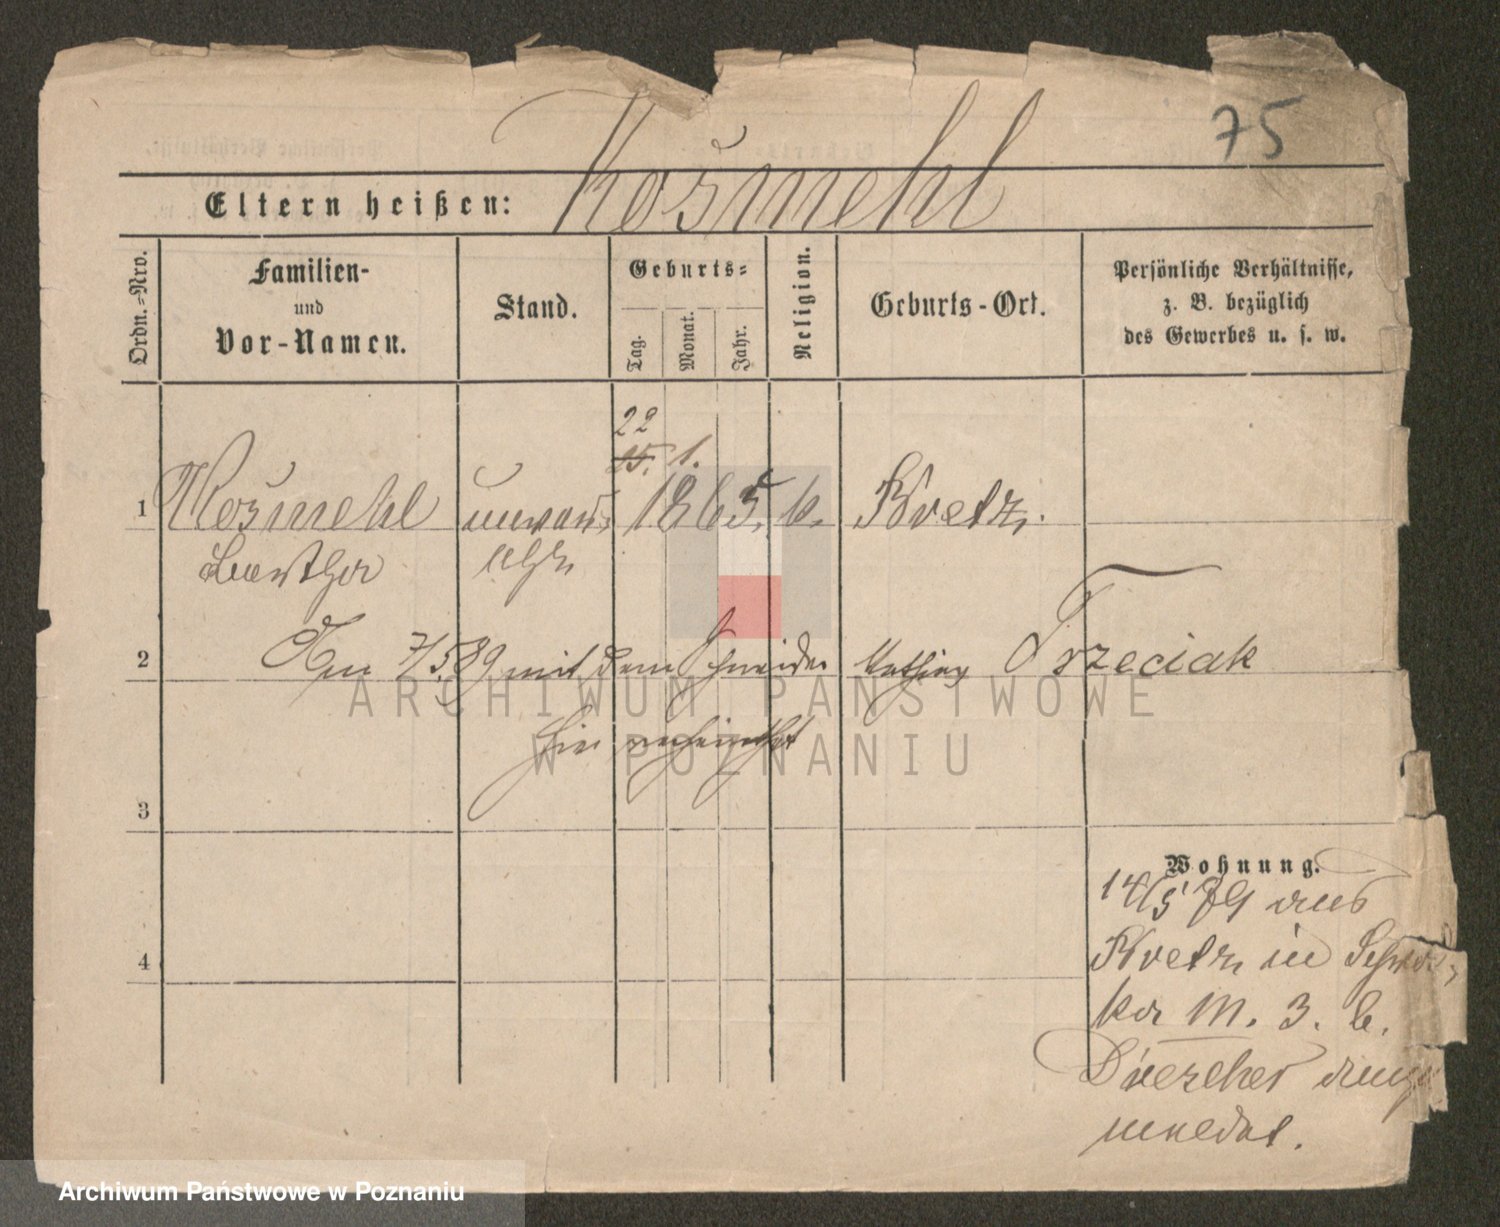 75
Kosmehl
Eltern heißen:
Ordn.-Nro.
Familien-
und
Vor-Namen.
Stand.
Geburts-
Tag.
Monat.
Jahr.
Religion.
Geburts-Ort.
Persönliche Verhältnisse,
z. B. bezüglich
des Gewerbes u. s. w.
22
15. 1.
1 Kosmehl unver- 1865. k. Kretz.
Bertha ehl.
2 Am 7/5 89 mit dem Schneider Mathias Trzeciak
ARCHIWUM PAŃSTWOWE
hier verheirathet
W POZNANIU
3
Wohnung.
14/5 89 aus
4
Kretz in
ka M. 3. b.
Drescher ange
meldet.
Archiwum Państwowe w Poznaniu